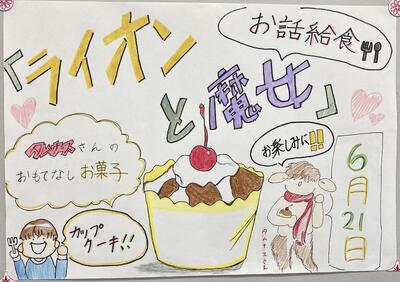 お話給食
「ライオン
と魔女」
タムナスさんの
おもてなしお菓子
カップ
ケーキ!!
お楽しみに!!
タムナスさん
6月21日